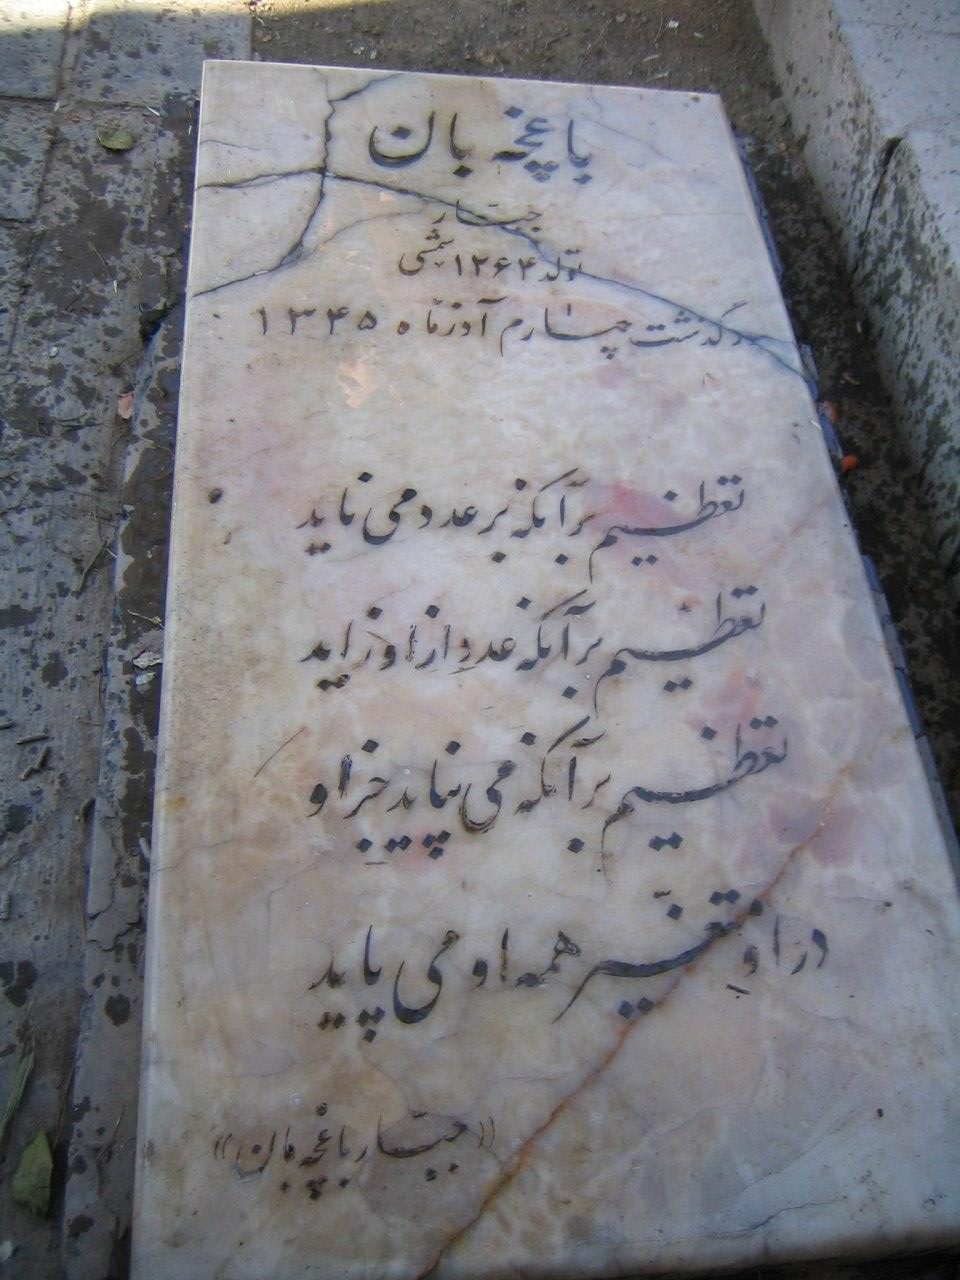 باغچه بان
جبّار
تولد ۱۲۶۴ شمسی
درگذشت چهارم آذر ماه ۱۳۴۵
تعظیم بر آنکه نز عدد می ناید
تعظیم بر آنکه عدد از او زاید
تعظیم بر آنکه می نپاید جز او
در او متغیّر همه او می پاید
«جبّار باغچه بان»